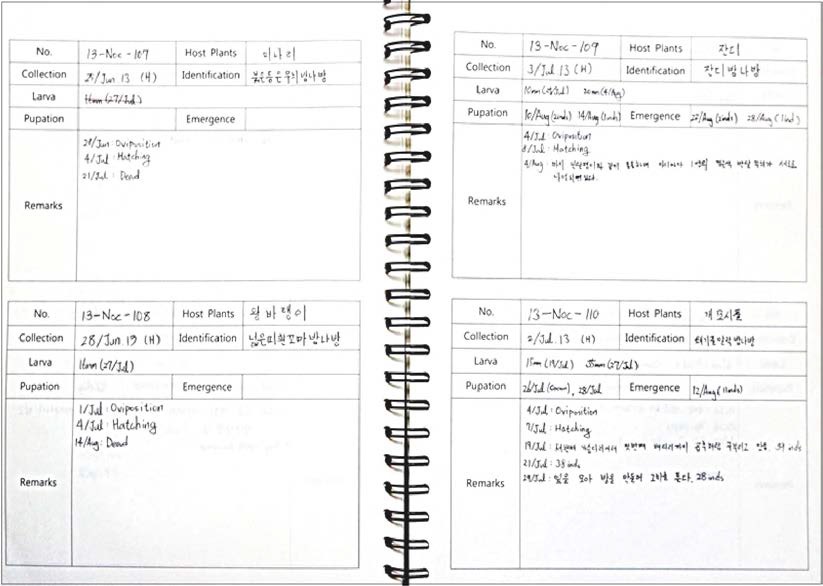 No. 13-Noc-107 Host Plants 미나리
Collection 25/Jun.13 (H) Identification 붉은등은무늬밤나방
Larva 16mm (27/Jul)
Pupation Emergence
29/Jun Oviposition
4/Jul: Hatching
21/Jul: Dead
Remarks
No. 13-Noc-108 Host Plants 왕바랭이
Collection 28/Jun.13 (H) Identification 넓은띠흰꼬마밤나방
Larva 16mm (27/Jul)
Pupation Emergence
1/Jul: Oviposition
4/Jul: Hatching
14/Aug: Dead
Remarks
No. 13-Noc-109 Host Plants 잔디
Collection 3/Jul.13 (H) Identification 잔디밤나방
Larva 20mm (4/Aug)
Pupation 10/Aug (2inds) 14/Aug Emergence 22/Aug (2inds) 28/Aug (1ind)
4/Jul: Oviposition
8/Jul: Hatching
4/Aug:
Remarks
No. 13-Noc-110 Host Plants 개모시풀
Collection 2/Jul.13 (H) Identification
Larva 15mm (19/Jul) 35mm (27/Jul)
Pupation 26/Jul (Cocoon), 28/Jul Emergence 12/Aug (11inds)
4/Jul: Oviposition
7/Jul: Hatching
19/Jul:
21/Jul: 38 inds
29/Jul: 잎을 모아 방을 만들어 28 inds
Remarks